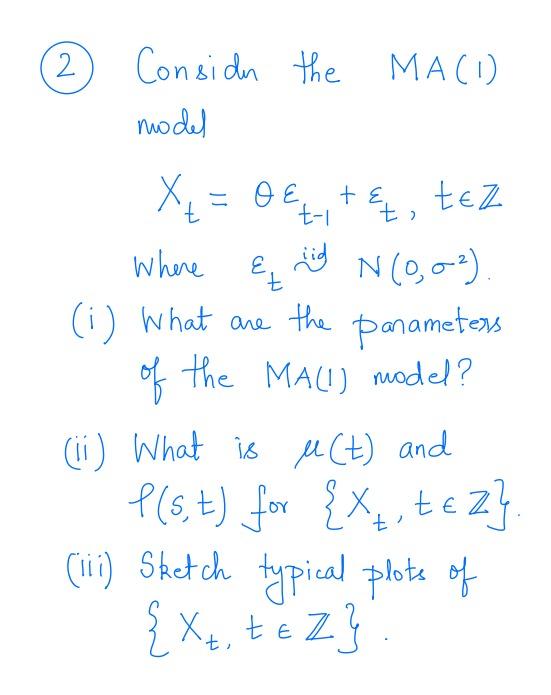 (2) Consider the MA(1)
model
X_t = θ ε_{t-1} + ε_t, t ∈ ℤ
where ε_t iid ~ N(0, σ²).
(i) What are the parameters
of the MA(1) model?
(ii) What is μ(t) and
ρ(s,t) for {X_t, t ∈ ℤ}.
(iii) Sketch typical plots of
{X_t, t ∈ ℤ}.